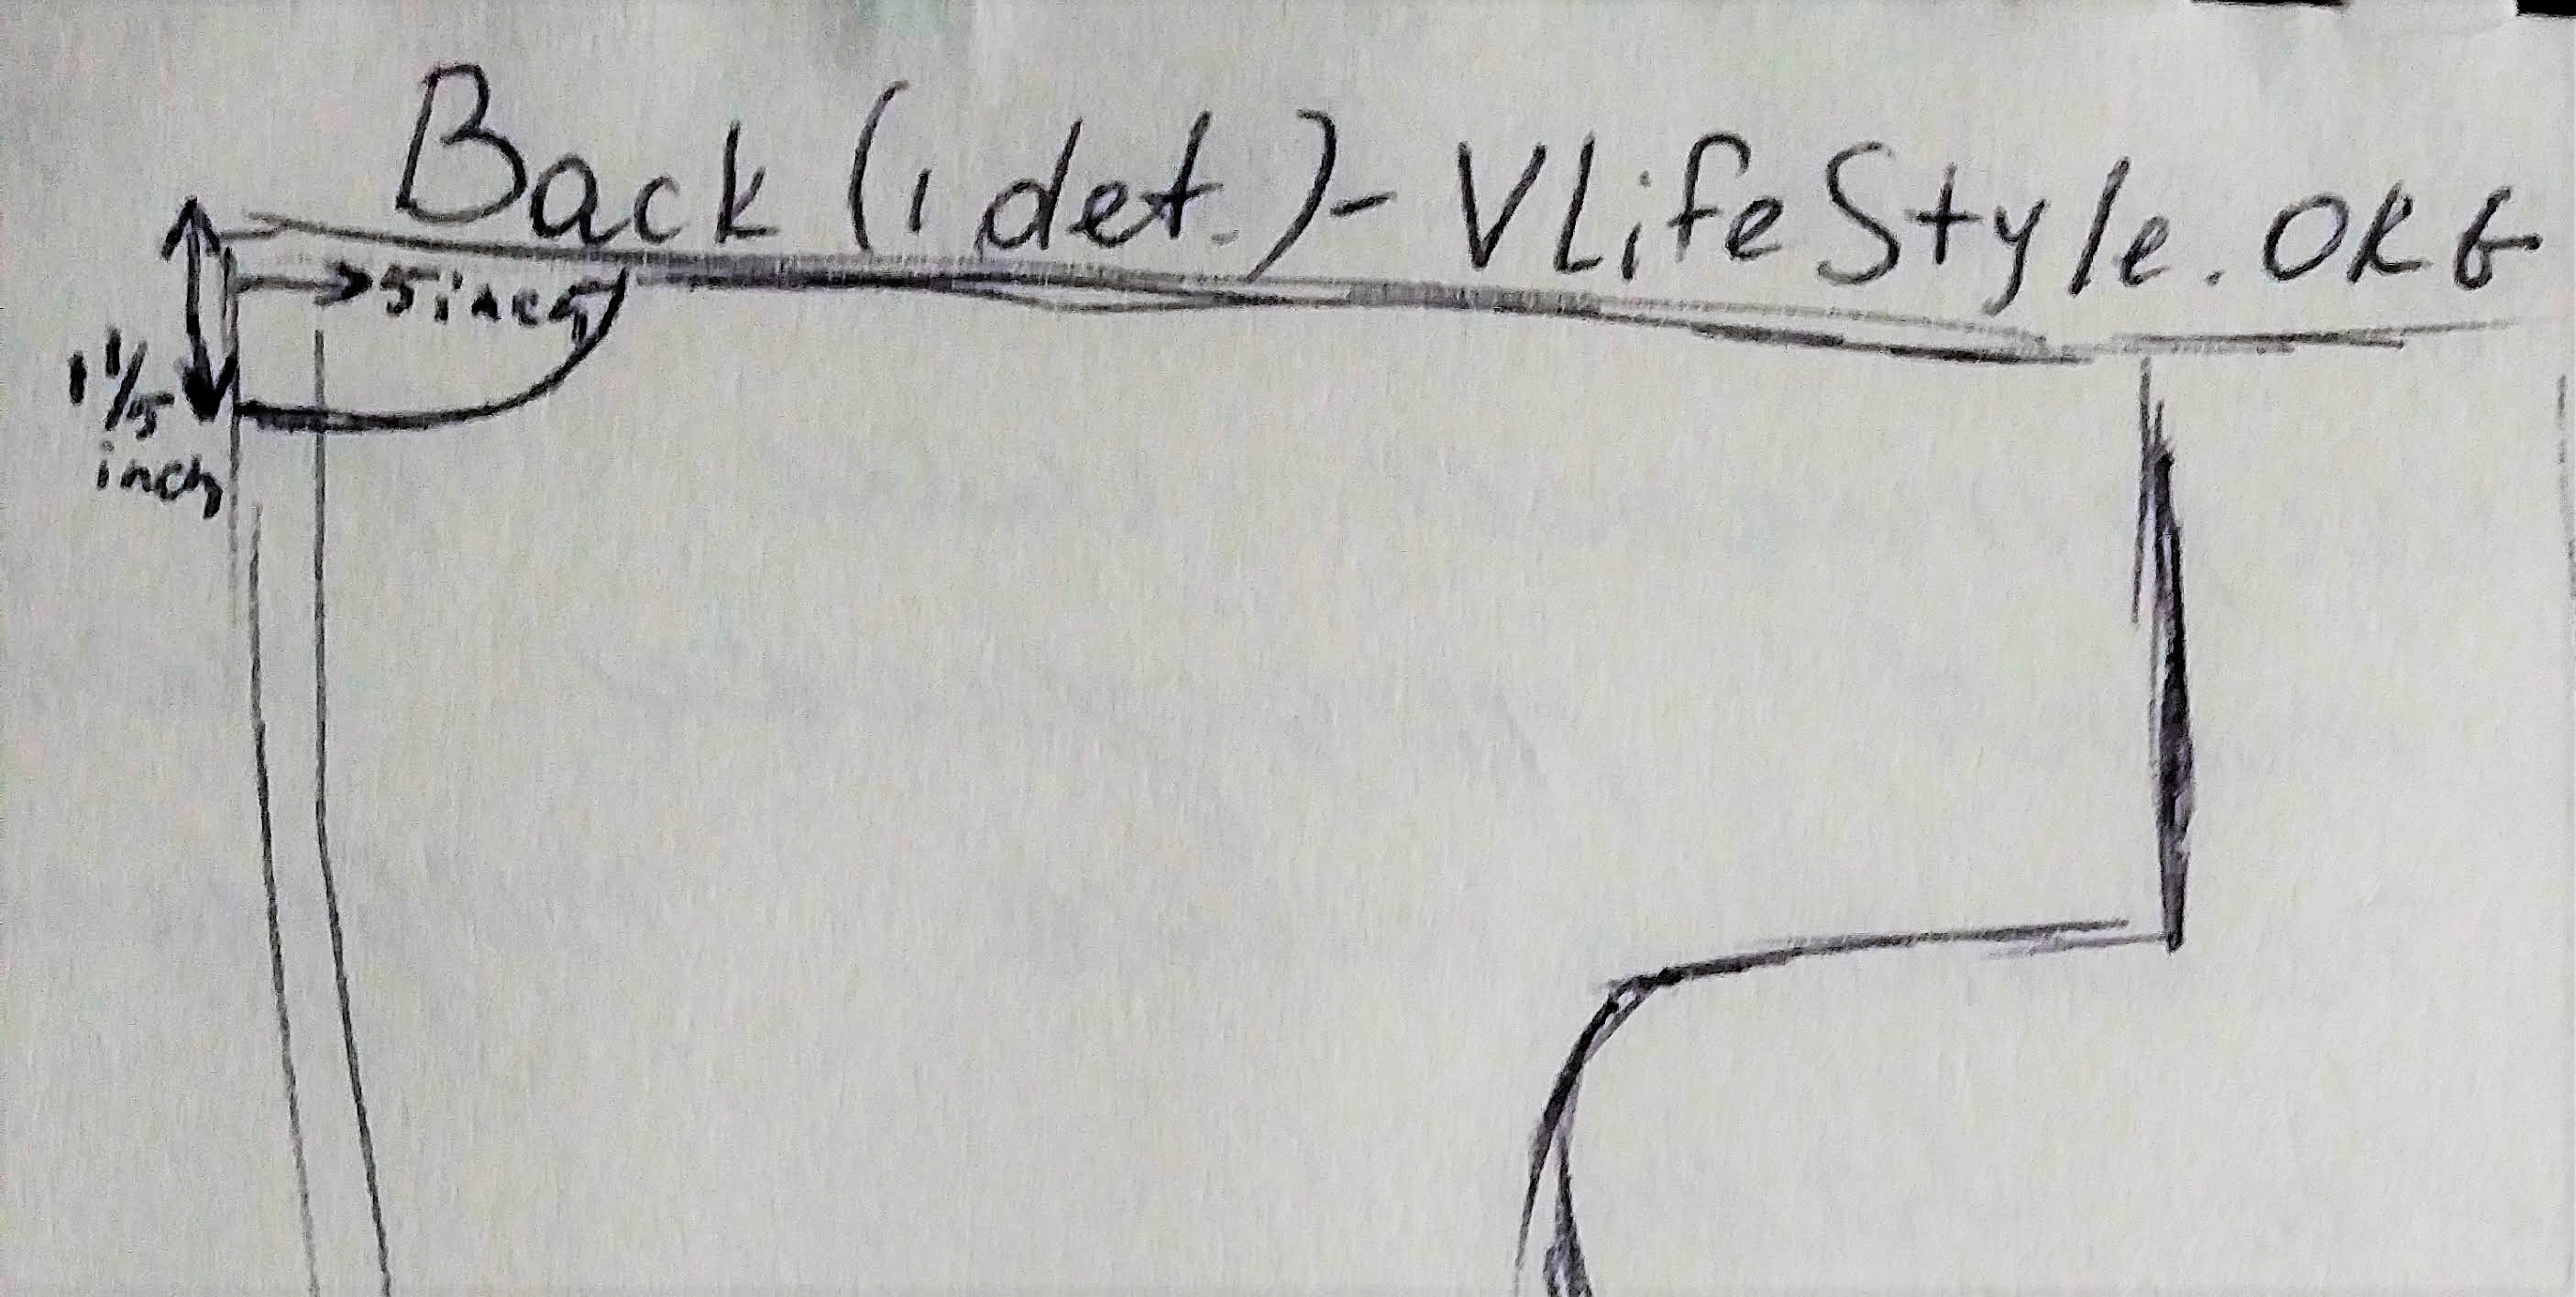 Back (1 det.)- VLifeStyle.ORG
5 inch
1 1/5
inch